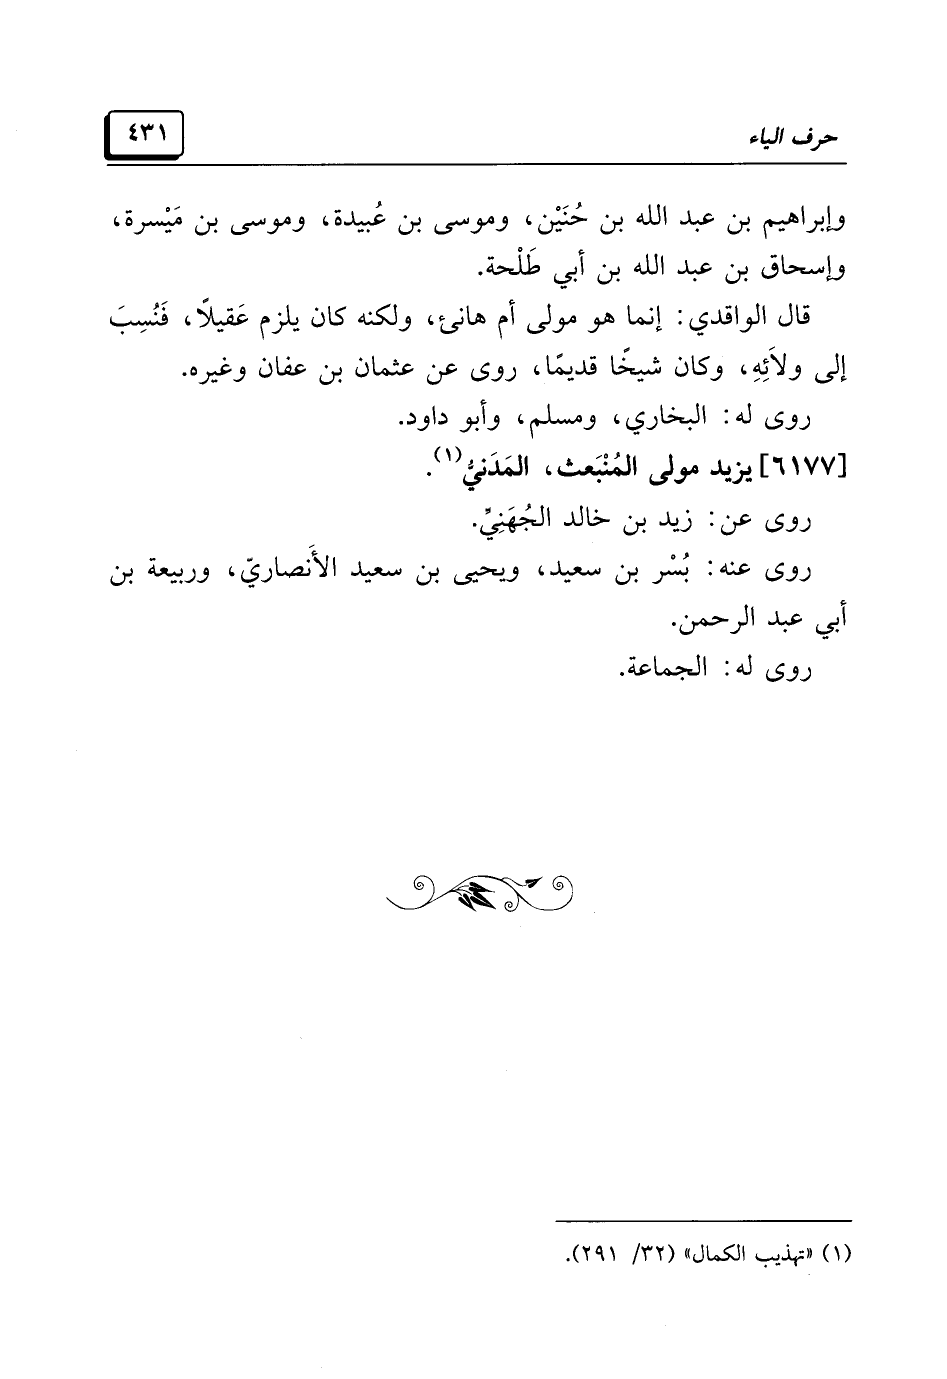 حرف الياء
٤٣١
وإبراهيم بن عبد الله بن حُنَيْن، وموسى بن عُبيدة، وموسى بن مَيْسرة،
وإسحاق بن عبد الله بن أبي طَلْحة.
قال الواقدي: إنما هو مولى أم هانئ، ولكنه كان يلزم عَقيلاً، فَنُسِبَ
إلى ولاَئِهِ، وكان شيخًا قديمًا، روى عن عثمان بن عفان وغيره.
روى له: البخاري، ومسلم، وأبو داود.
[٦١٧٧] يزيد مولى المُنْبَعث، المَدَنيُّ(١).
روى عن: زيد بن خالد الجُهَنِيِّ.
روى عنه: بُسْر بن سعيد، ويحيى بن سعيد الأَنصاريّ، وربيعة بن
أبي عبد الرحمن.
روى له: الجماعة.
(١) «تهذيب الكمال» (٣٢/ ٢٩١).